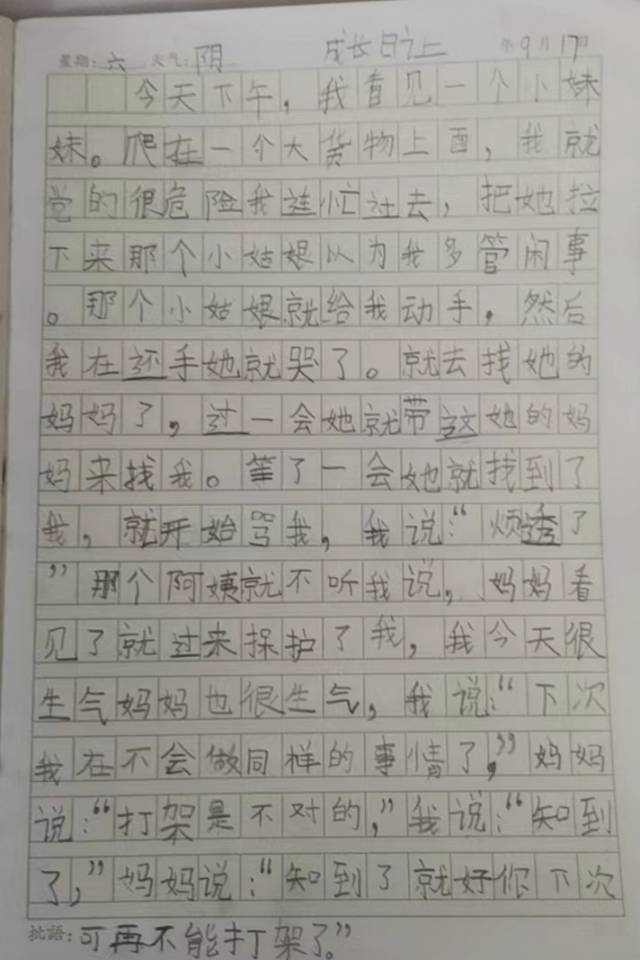 星期:六 天气:阴 成长日记上 年9月17日
今天下午，我看见一个小妹
妹。爬在一个大货物上面，我就
觉的很危险我连忙过去，把她拉
下来那个小姑娘以为我多管闲事
。那个小姑娘就给我动手，然后
我在还手她就哭了。就去找她的
妈妈了，过一会她就带这她的妈
妈来找我。等了一会她就找到了
我，就开始骂我，我说：“烦透了
”那个阿姨就不听我说，妈妈看
见了就过来保护了我，我今天很
生气妈妈也很生气，我说：“下次
我在不会做同样的事情了，”妈妈
说：“打架是不对的，”我说：“知到
了，”妈妈说：“知到了就好你下次
批語:可再不能打架了。”